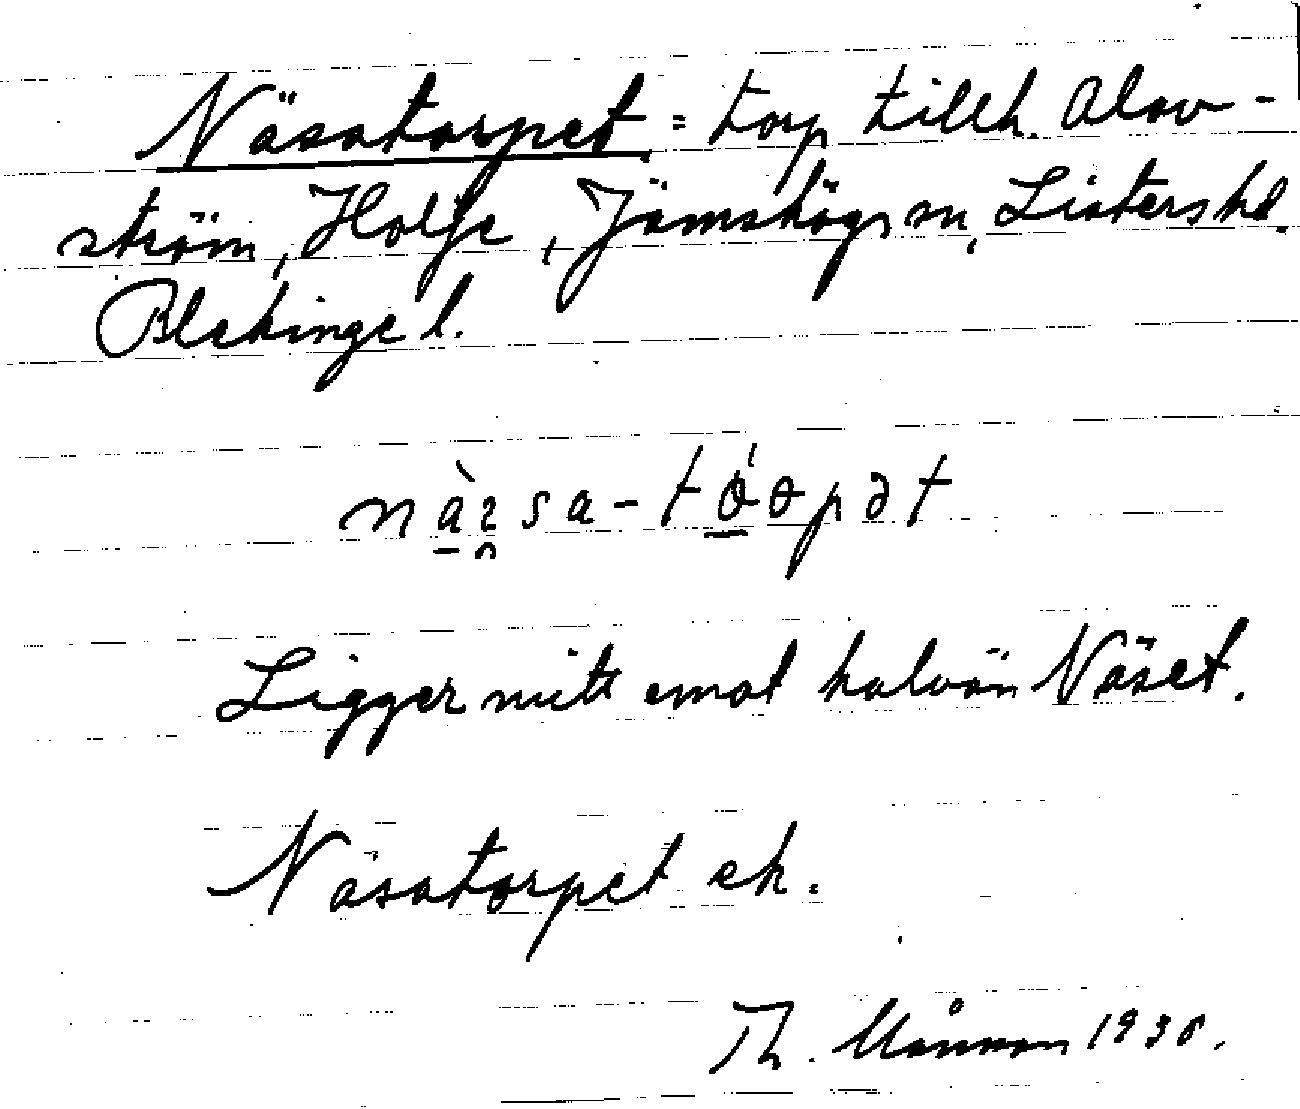 Näsatorpet = torp tillh. Alov-
ström, Holje, Jämshögs sn, Listers hd.
Blekinge l.
nàɛsa-tóɵpət
Ligger mitt emot halvön Näset.
Näsatorpet ek.
Th. 193